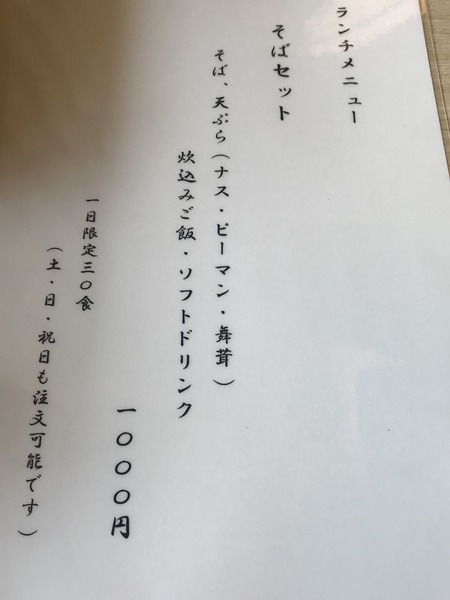 ランチメニュー
そばセット
そば、天ぷら(ナス・ピーマン・舞茸)
炊込みご飯・ソフトドリンク
一〇〇〇円
一日限定三〇食
(土・日・祝日も注文可能です)